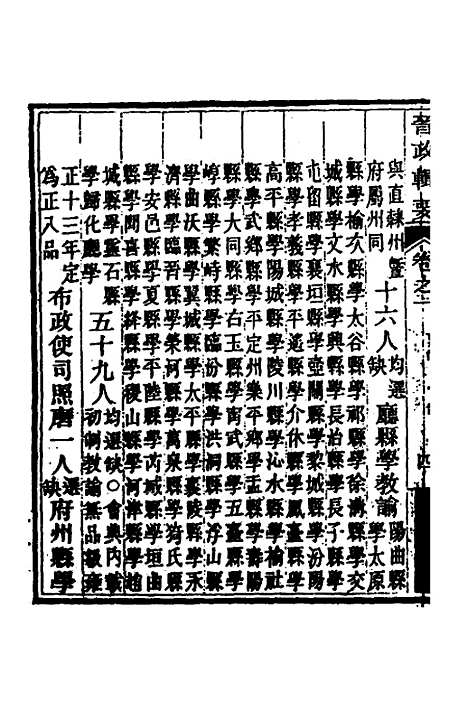 晉政輯要
卷之二
與直隸州暨
府屬州同
十六人
均選
缺
廳縣學教諭
陽曲縣
學太原
縣學榆次縣學太谷縣學祁縣學徐溝縣學交
城縣學文水縣學興縣學長治縣學長子縣學
屯留縣學襄垣縣學壺關縣學黎城縣學汾陽
縣學孝義縣學平遙縣學介休縣學鳳臺縣學
高平縣學陽城縣學陵川縣學沁水縣學榆社
縣學武鄉縣學平定州樂平鄉學盂縣學壽陽
縣學大同縣學右玉縣學甯武縣學五臺縣學
崞縣學繁峙縣學臨汾縣學洪洞縣學浮山縣
學曲沃縣學翼城縣學太平縣學襄陵縣學永
濟縣學臨晉縣學榮河縣學萬泉縣學猗氏縣
學安邑縣學夏縣學平陸縣學芮城縣學垣曲
縣學聞喜縣學絳縣學稷山縣學河津縣學趙
城縣學靈石縣
學歸化廳學
五十九人
均選缺○會典內載
初制教諭無品級雍
正十三年定
爲正八品
布政使司照磨一人
選
缺
府州縣學